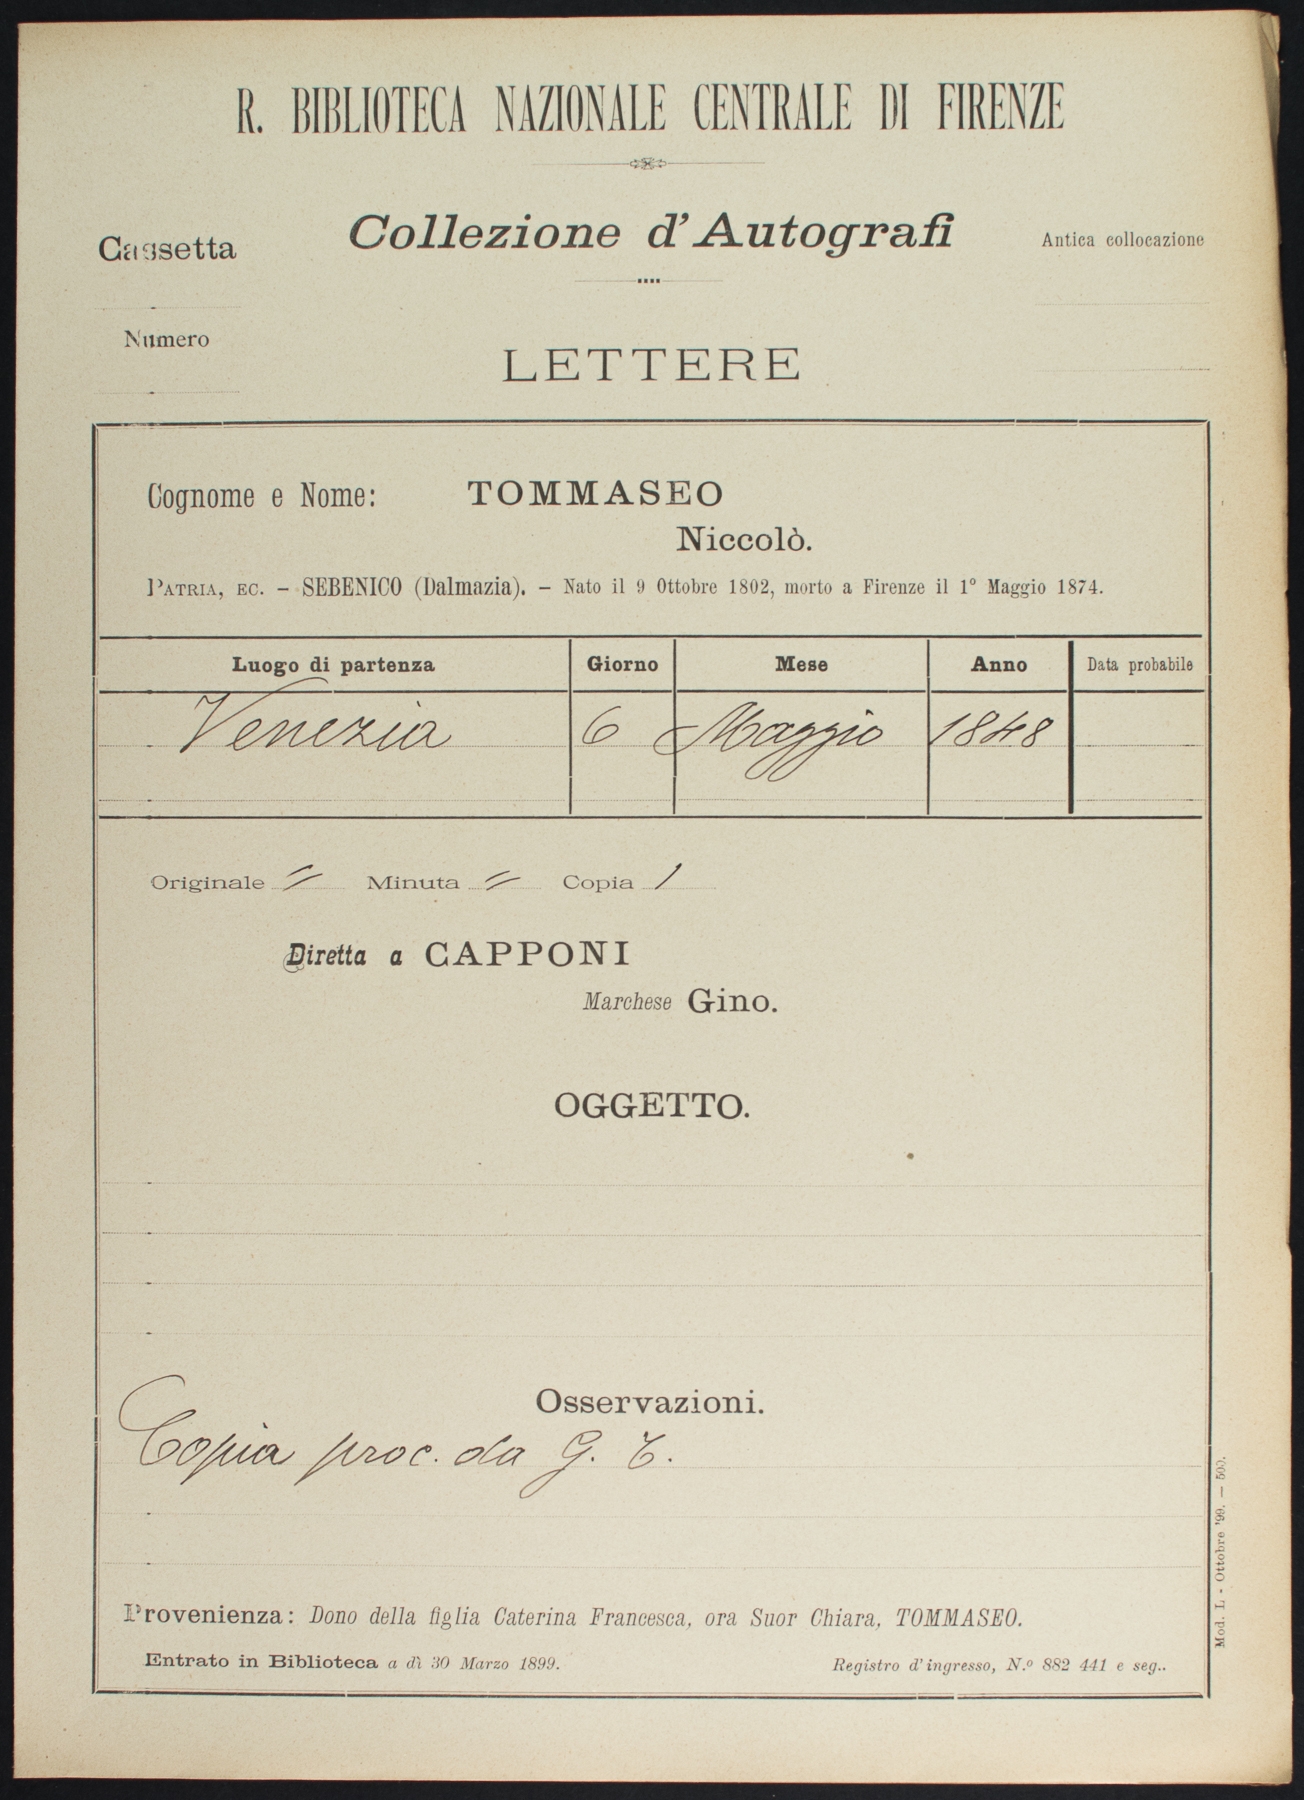 R. BIBLIOTECA NAZIONALE CENTRALE DI FIRENZE
Collezione d'Autografi
Cassetta
Antica collocazione
Numero
LETTERE
Cognome e Nome: TOMMASEO
Niccolò.
PATRIA, EC. - SEBENICO (Dalmazia). - Nato il 9 Ottobre 1802, morto a Firenze il 1° Maggio 1874.
Luogo di partenza Giorno Mese Anno Data probabile
Venezia 6 Maggio 1848
Originale = Minuta = Copia 1
Diretta a CAPPONI
Marchese Gino.
OGGETTO.
Osservazioni.
Copia proc. da G. T.
Provenienza: Dono della figlia Caterina Francesca, ora Suor Chiara, TOMMASEO.
Entrato in Biblioteca a dì 30 Marzo 1899. Registro d'ingresso, N.º 882 441 e seg..
Mod. L - Ottobre '99. — 500.